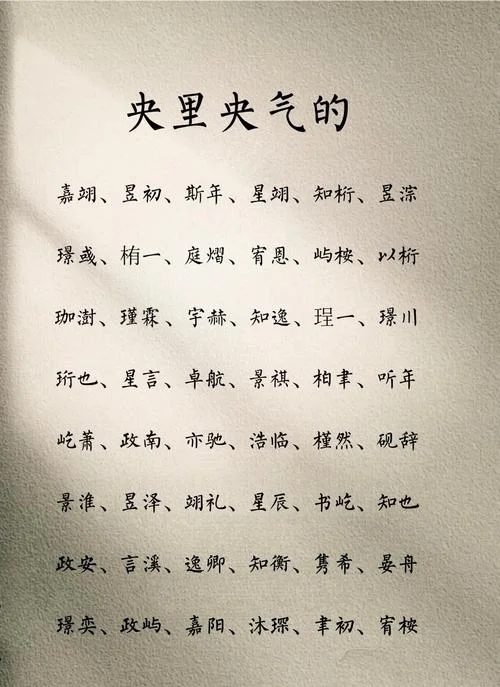 央里央气的
嘉翊、昱初、斯年、星翊、知桁、昱淙
璟彧、栯一、庭熠、宥恩、屿桉、以桁
珈澍、瑾霖、宇赫、知逸、珵一、璟川
珩也、星言、卓航、景祺、柏聿、听年
屹萧、政南、亦驰、浩临、槿然、砚辞
景淮、昱泽、翊礼、星辰、书屹、知也
政安、言溪、逸卿、知衡、隽希、晏舟
璟奕、政屿、嘉阳、沐琛、聿初、宥桉